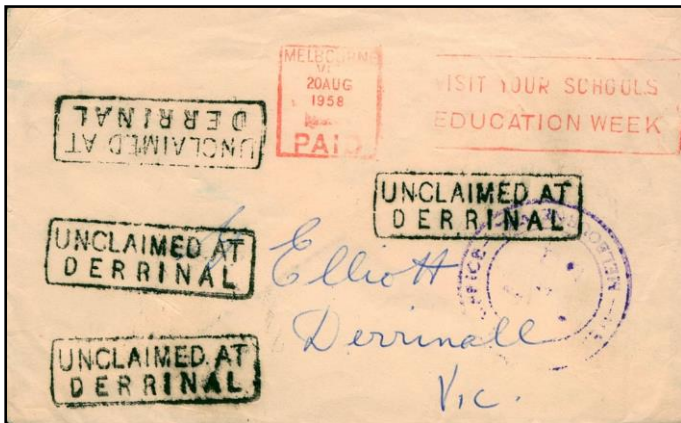 MELBOURNE
VIC
20AUG
1958
PAID
VISIT YOUR SCHOOLS
EDUCATION WEEK
UNCLAIMED AT
DERRINAL
UNCLAIMED AT
DERRINAL
UNCLAIMED AT
DERRINAL
Elliott
Derrinall
Vic.
UNCLAIMED AT
DERRINAL
MELBOURNE